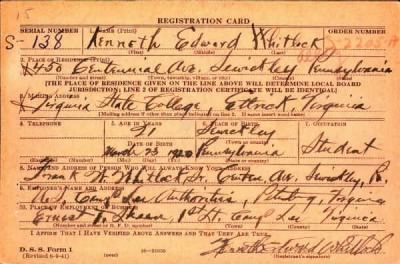 15
REGISTRATION CARD
SERIAL NUMBER 1. NAME (Print) ORDER NUMBER
S-138 Kenneth Edward Whitlock
2. PLACE OF RESIDENCE (Print)
450 Centennial Ave. Sewickley Pennsylvania
(Number and street) (Town, township, village, or city) (County) (State)
[THE PLACE OF RESIDENCE GIVEN ON THE LINE ABOVE WILL DETERMINE LOCAL BOARD
JURISDICTION; LINE 2 OF REGISTRATION CERTIFICATE WILL BE IDENTICAL]
3. MAILING ADDRESS
Virginia State College Ettrick, Virginia
[Mailing address if other than place indicated on line 2. If same insert word same]
4. TELEPHONE 5. AGE IN YEARS 6. PLACE OF BIRTH 7. OCCUPATION
21 Sewickley
DATE OF BIRTH (Town or county)
March 23 1920 Pennsylvania Student
(Mo.) (Day) (Yr.) (State or country)
8. NAME AND ADDRESS OF PERSON WHO WILL ALWAYS KNOW YOUR ADDRESS
Frank Whitlock Sr. Ave. Sewickley, Pa.
9. EMPLOYER'S NAME AND ADDRESS
Camp Lee Virginia
10. PLACE OF EMPLOYMENT OR BUSINESS
Ernest 1st Lt. Camp Lee Virginia
(Number and street or R. F. D. number) (Town) (County) (State)
I AFFIRM THAT I HAVE VERIFIED ABOVE ANSWERS AND THAT THEY ARE TRUE.
D. S. S. Form 1
(Revised 6-9-41) (over) Kenneth Edward Whitlock
(Registrant's signature)